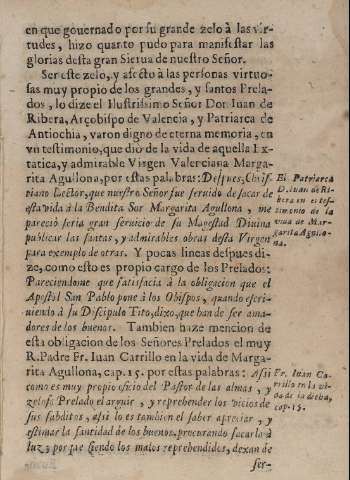 en que gouernado por su grande zelo à las vir-
tudes, hizo quanto pudo para manifestar las
glorias desta gran Sierua de nuestro Señor.
Ser este zelo, y afecto à las personas virtuo-
sas muy propio de los grandes, y santos Prela-
dos, lo dize el Ilustrissimo Señor Don Iuan de
Ribera, Arçobispo de Valencia, y Patriarca de
Antiochia, varon digno de eterna memoria, en
vn testimonio, que diò de la vida de aquella Ix-
tatica, y admirable Virgen Valenciana Marga-
rita Agullona, por estas palabras: Despues, Chris-
tiano Lector, que nuestro Señor fue seruido de sacar de
esta vida à la Bendita Sor Margarita Agullona, me
pareciò seria gran seruicio de su Magestad Diuina
publicar las santas, y admirables obras desta Virgen
para exemplo de otras. Y pocas lineas despues di-
ze, como esto es propio cargo de los Prelados:
Pareciendome que satisfacia à la obligacion que el
Apostol San Pablo pone à los Obispos, quando escri-
uiendo à su Discipulo Tito, dixo, que han de ser ama-
dores de los buenos. Tambien haze mencion de
esta obligacion de los Señores Prelados el muy
R. Padre Fr. Iuan Carrillo en la vida de Marga-
rita Agullona, cap. 15. por estas palabras: Assi
como es muy propio oficio del Pastor de las almas, y
zeloso Prelado el arguir, y reprehender los vicios de
sus subditos, assi lo es tambien el saber apreciar, y
estimar la santidad de los buenos, procurando sacarla à
luz; porque siendo los malos reprehendidos, dexan de
ser-
El Patriarca
D. Iuan de Ri-
bera en el tes-
timonio de la
vida de Mar-
garita Agullo-
na.
Fr. Iuan Ca-
rrillo en la vi-
da de la dicha,
cap. 15.